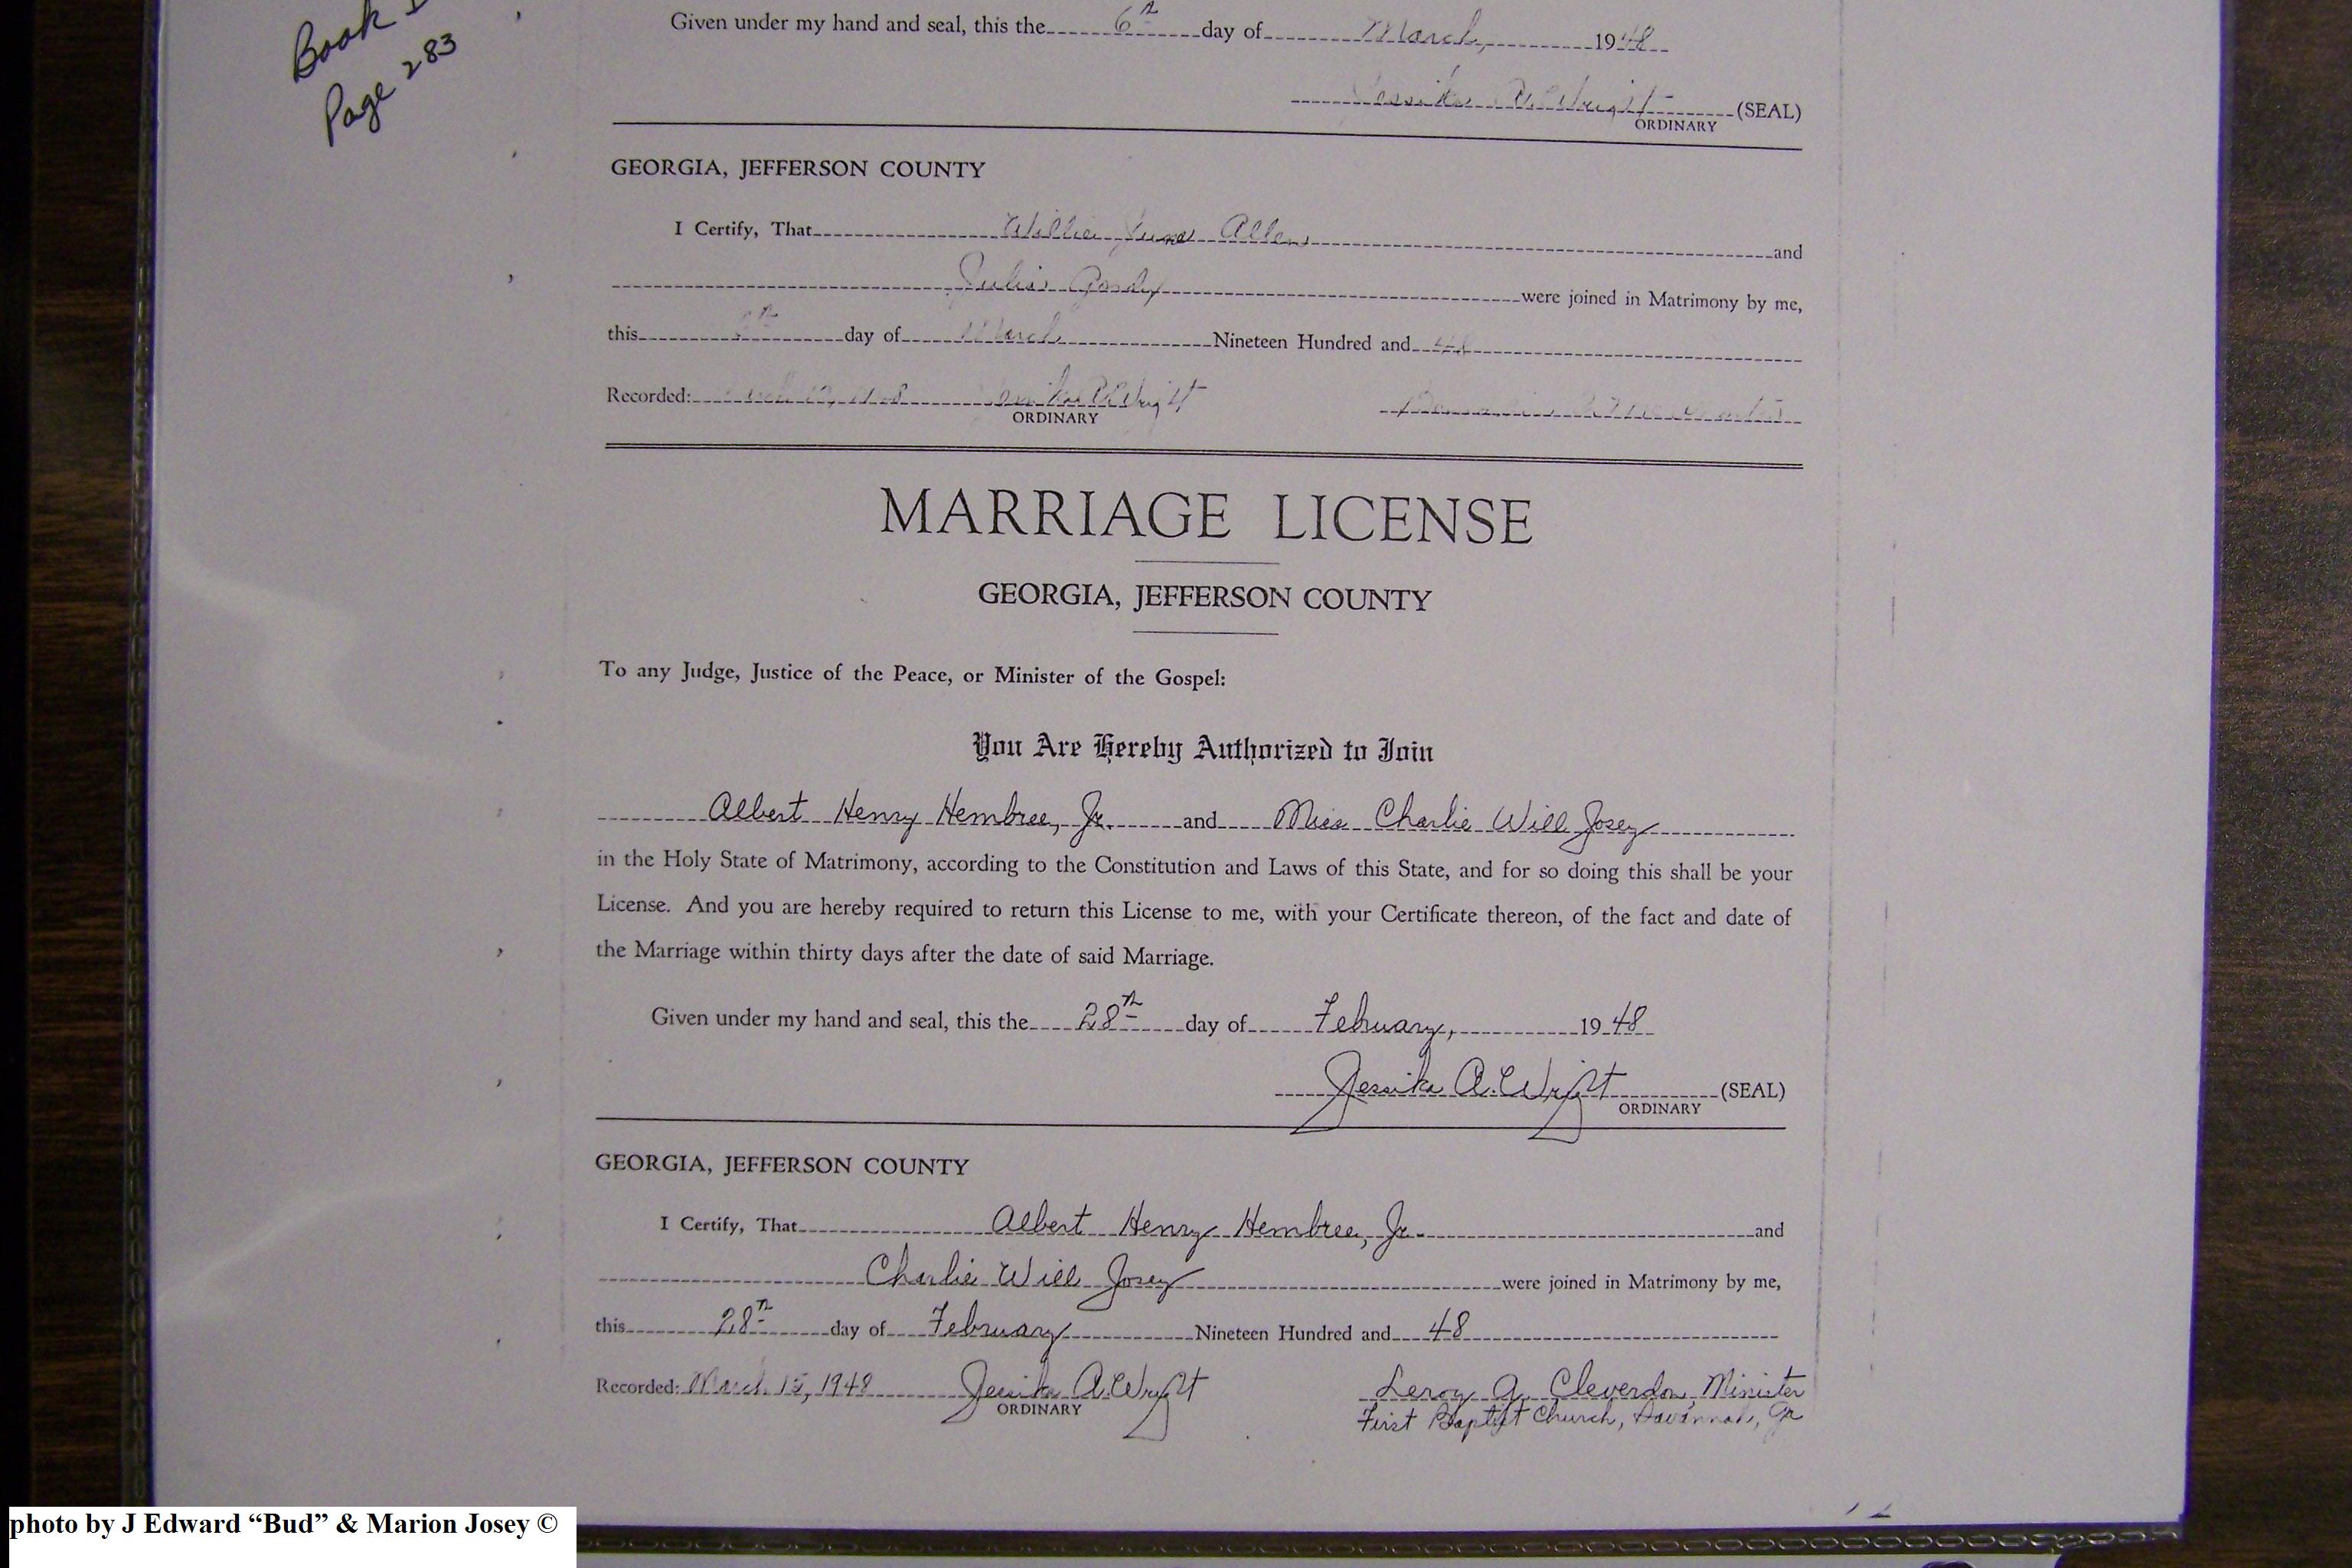 Book
Page 283
Given under my hand and seal, this the 6th day of March, 1948
Wright (SEAL)
ORDINARY
GEORGIA, JEFFERSON COUNTY
I Certify, That Willie Allen and
Julia were joined in Matrimony by me,
this day of March Nineteen Hundred and 48
Recorded: Wright
ORDINARY
MARRIAGE LICENSE
GEORGIA, JEFFERSON COUNTY
To any Judge, Justice of the Peace, or Minister of the Gospel:
You Are Hereby Authorized to Join
Albert Henry Hembree, Jr. and Miss Charlie Will Josey
in the Holy State of Matrimony, according to the Constitution and Laws of this State, and for so doing this shall be your
License. And you are hereby required to return this License to me, with your Certificate thereon, of the fact and date of
the Marriage within thirty days after the date of said Marriage.
Given under my hand and seal, this the 28th day of February, 1948
Jessika A. Wright (SEAL)
ORDINARY
GEORGIA, JEFFERSON COUNTY
I Certify, That Albert Henry Hembree, Jr. and
Charlie Will Josey were joined in Matrimony by me,
this 28th day of February Nineteen Hundred and 48
Recorded: March 15, 1948 Jessika A. Wright Leroy G. Cleverdon, Minister
ORDINARY First Baptist Church, Savannah, Ga
photo by J Edward “Bud” & Marion Josey ©